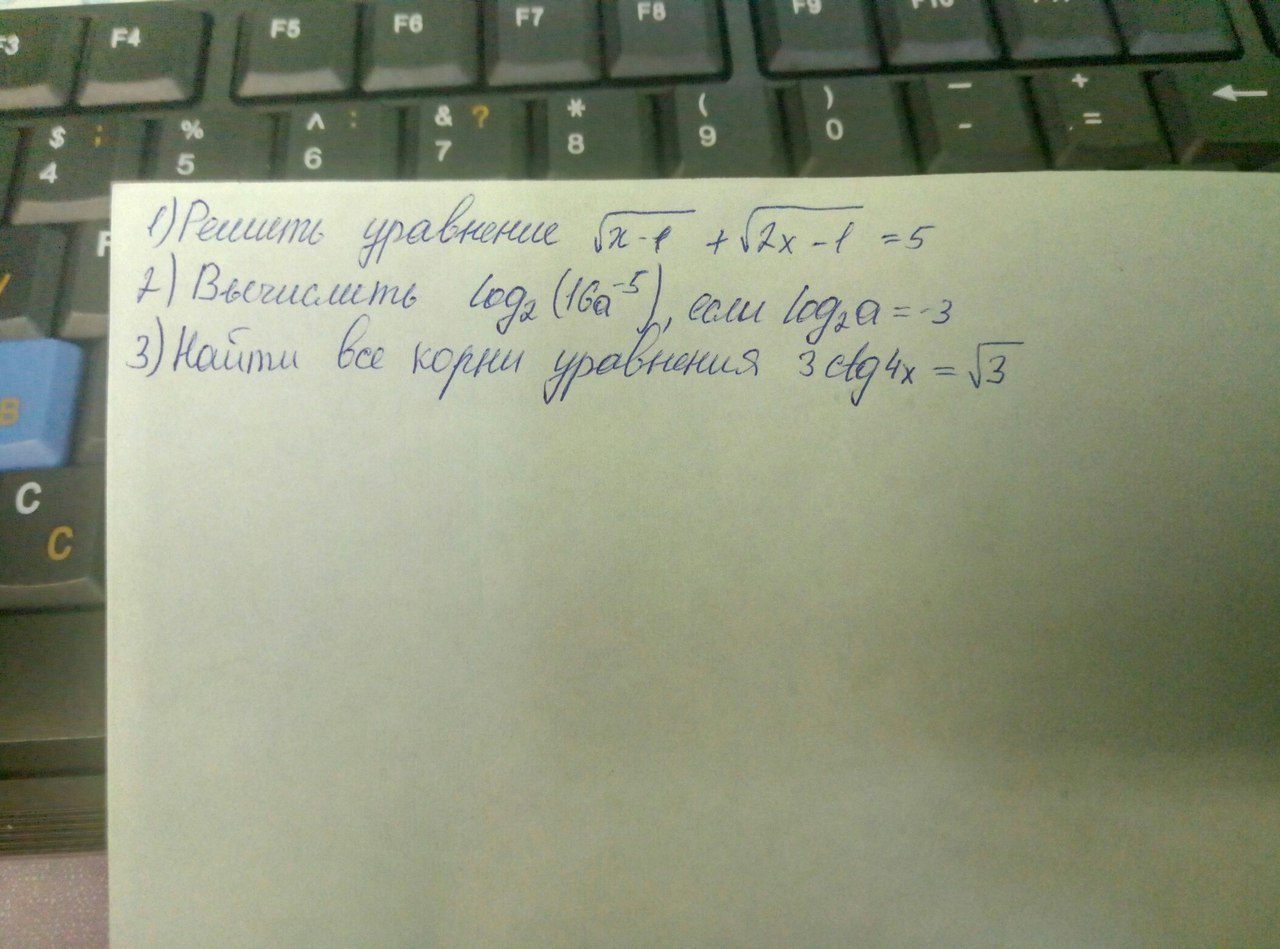 F3 F4 F5 F6 F7 F8 F9
$ ; 4 % 5 ^ : 6 & ? 7 * 8 ( 9 ) 0 — - + = ←
1) Решить уравнение √x-1 + √2x-1 = 5
2) Вычислить log₂(16a⁻⁵), если log₂a = -3
3) Найти все корни уравнения 3 ctg 4x = √3
B
C
C